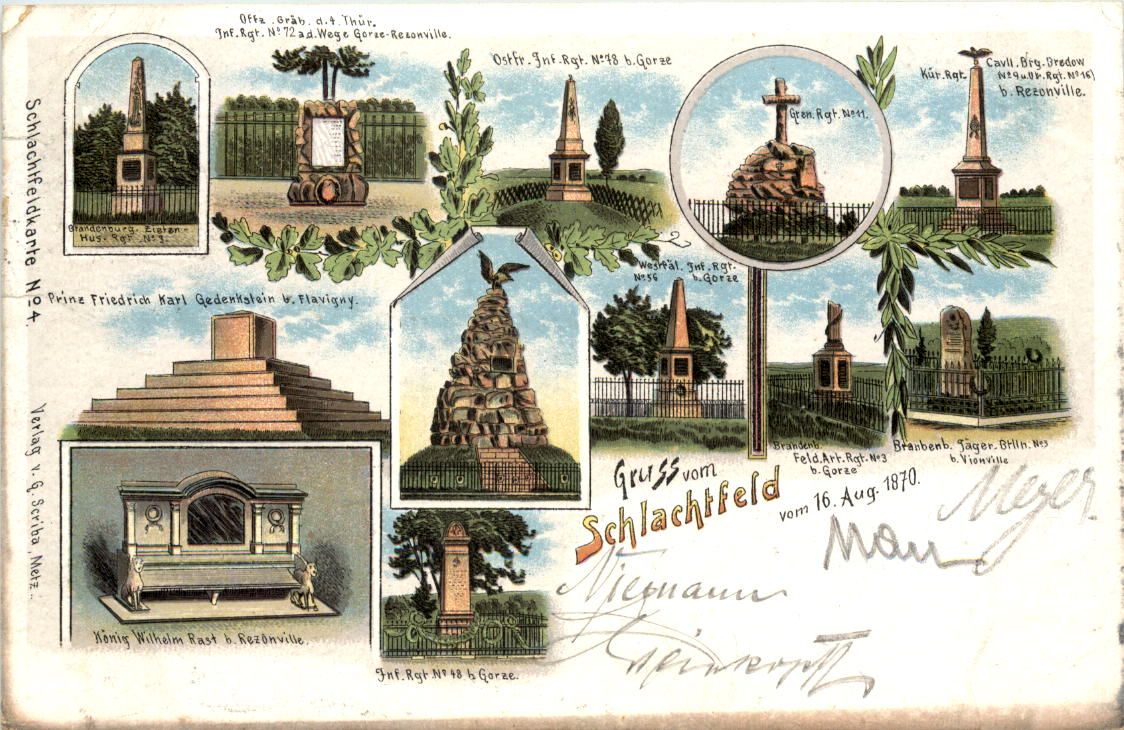 Schlachtfeldkarte No 4.
Verlag v. G. Scriba, Metz.
Brandenburg. Zieten-
Hus. Rgt. No 3.
Offz. Gräb. d. 4. Thür.
Inf. Rgt. No 72 a.d. Wege Gorze-Rezonville.
Ostfr. Inf. Rgt. No 78 b. Gorze
Gren. Rgt. No 11.
Kür. Rgt.
Cavll. Brg. Bredow
b. Rezonville.
Prinz Friedrich Karl Gedenkstein b. Flavigny.
Westfäl. Inf. Rgt.
No 56 b. Gorze
Brandenb.
Feld. Art. Rgt. No 3
b. Gorze
Branbenb. Jäger. Btlln. No 3
b. Vionville
König Wilhelm Rast b. Rezonville.
Inf. Rgt. No 48 b. Gorze.
Gruss vom
Schlachtfeld
vom 16. Aug. 1870.
Meyer.
Niemann